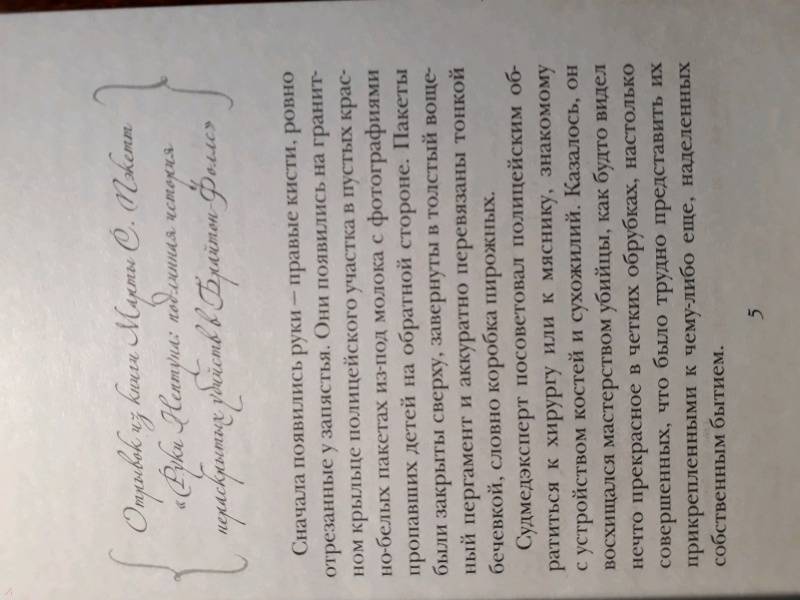 Отрывок из книги Марты С. Пэкетт
«Руки Нептуна: подлинная история
нераскрытых убийств в Брайтон Фоллс»
Сначала появились руки — правые кисти, ровно
отрезанные у запястья. Они появились на гранит-
ном крыльце полицейского участка в пустых крас-
но-белых пакетах из-под молока с фотографиями
пропавших детей на обратной стороне. Пакеты
были закрыты сверху, завернуты в толстый воще-
ный пергамент и аккуратно перевязаны тонкой
бечевкой, словно коробка пирожных.
Судмедэксперт посоветовал полицейским об-
ратиться к хирургу или к мяснику, знакомому
с устройством костей и сухожилий. Казалось, он
восхищался мастерством убийцы, как будто видел
нечто прекрасное в четких обрубках, настолько
совершенных, что было трудно представить их
прикрепленными к чему-либо еще, наделенных
собственным бытием.
5